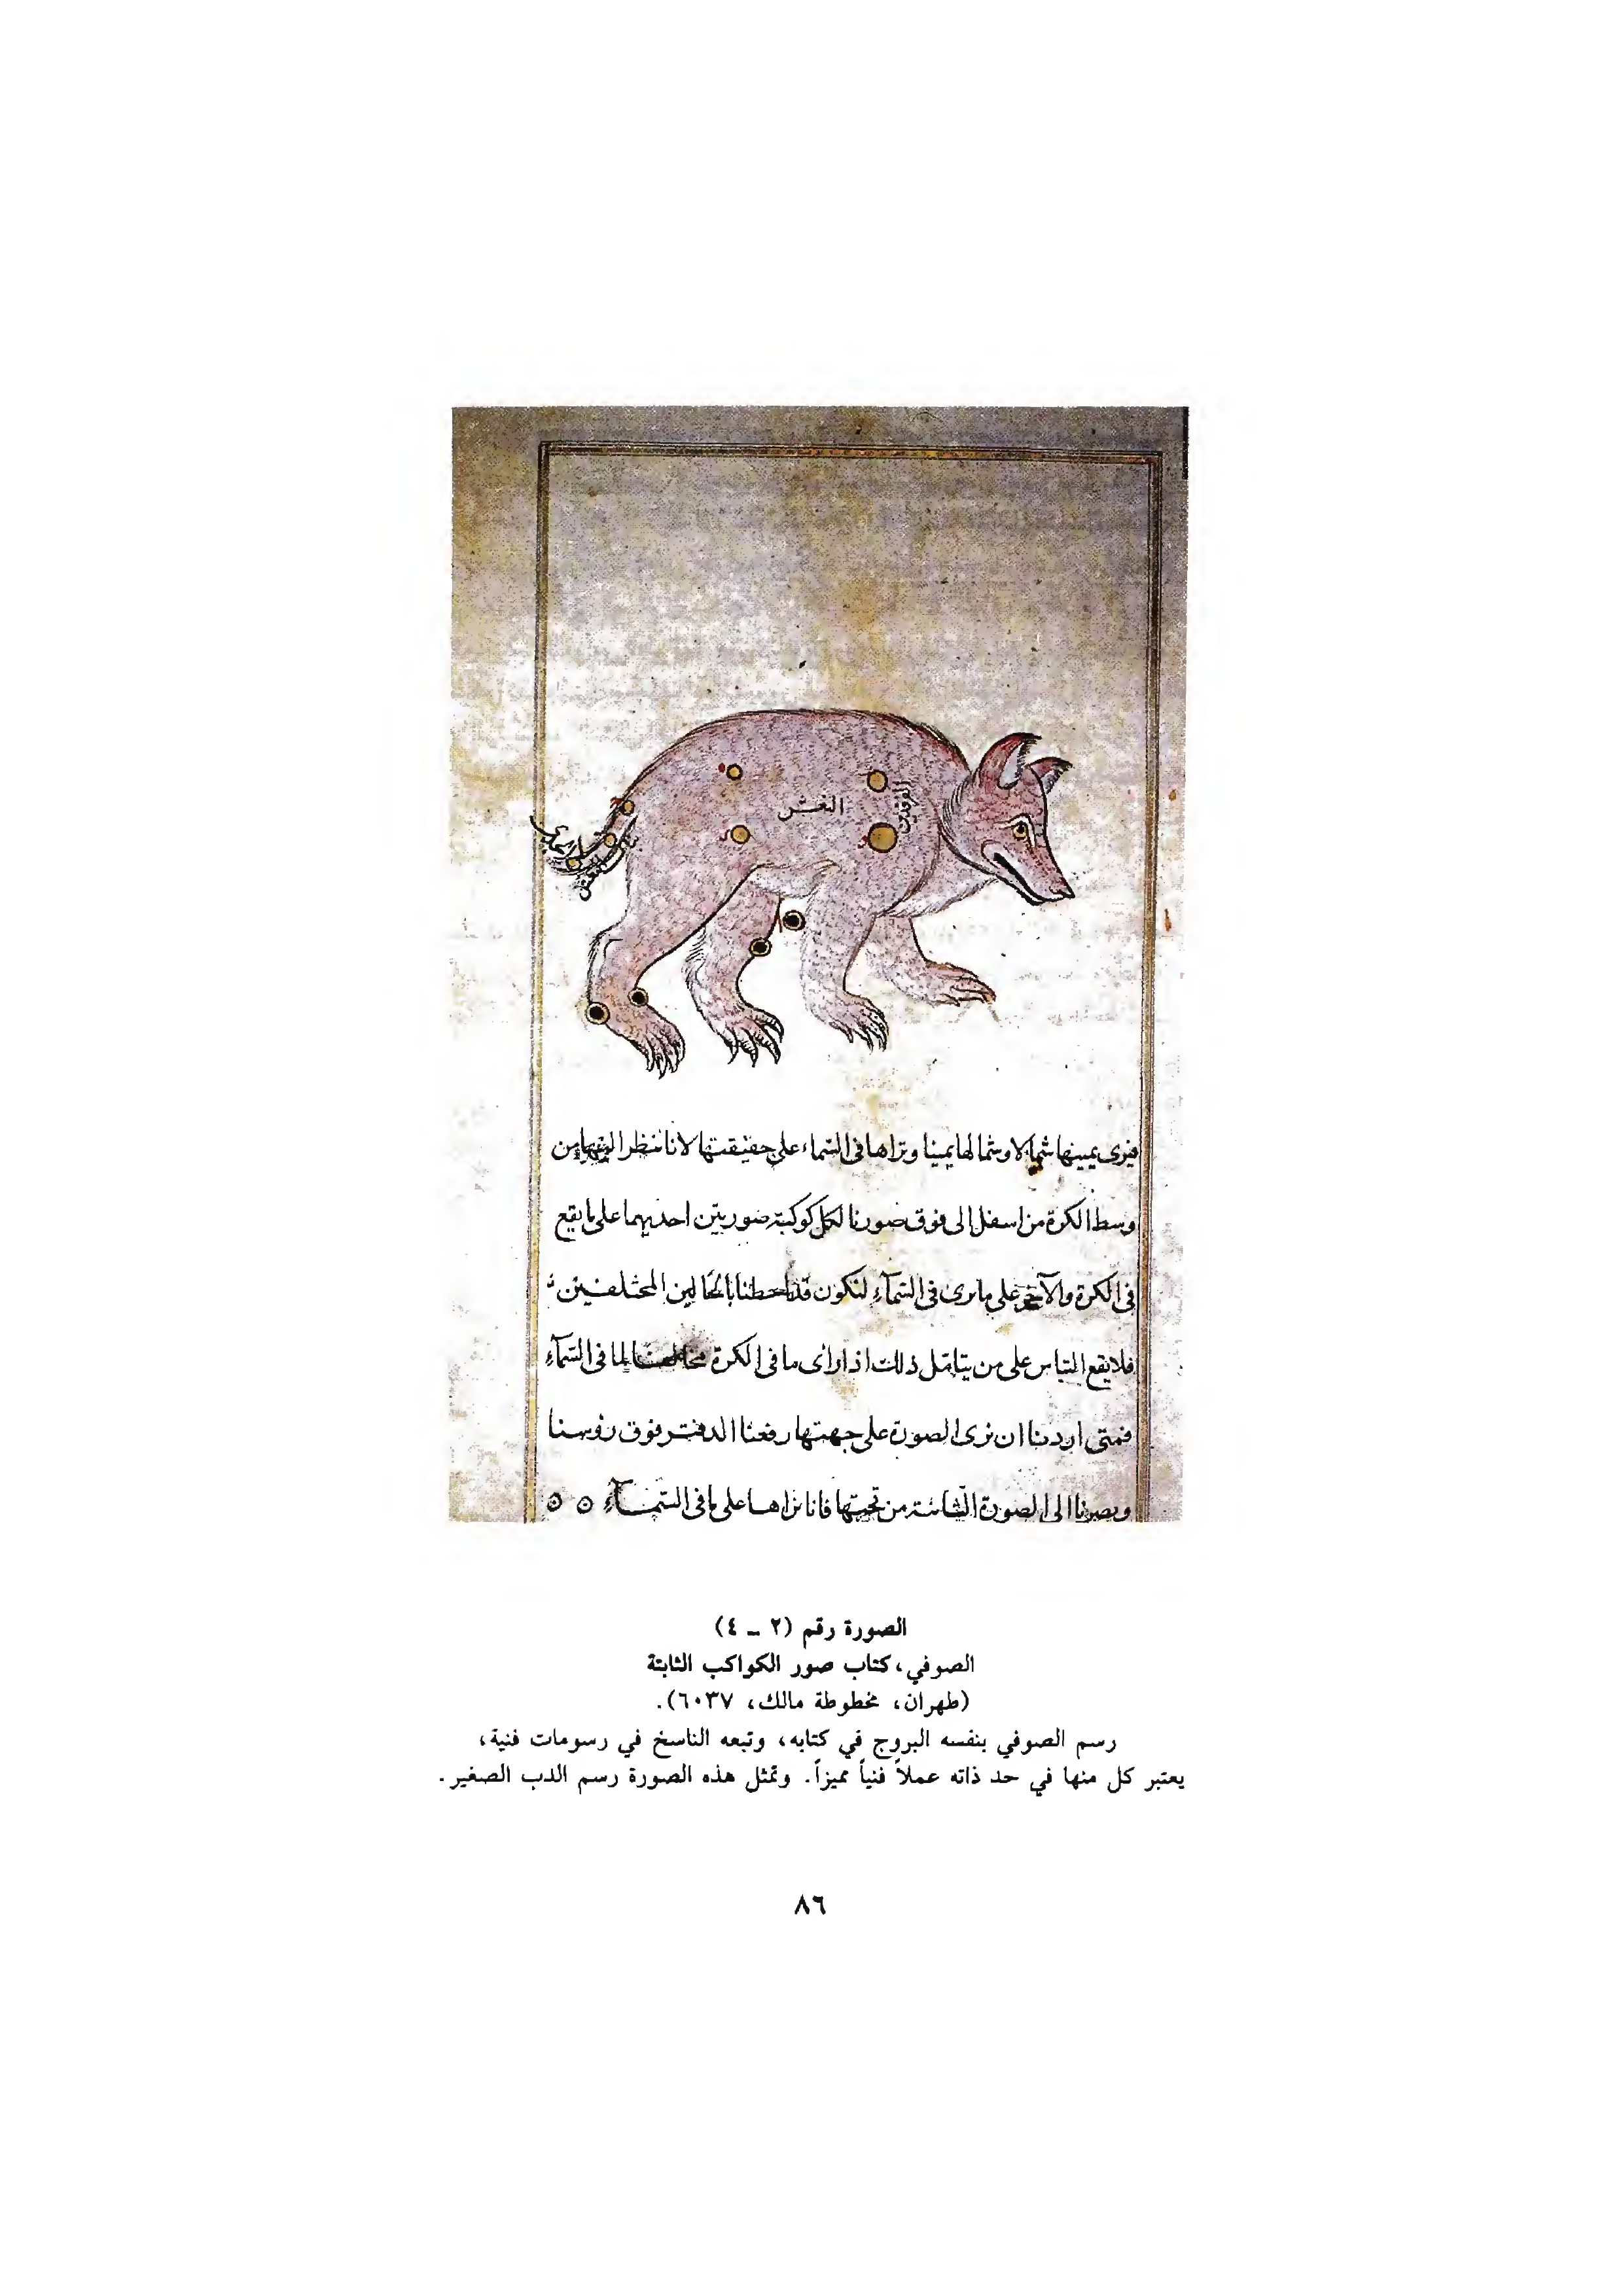 النعش
الفرقدين
الجدي
فيرى يمينها شمالا وشمالها يمينا ونراها في السماء على حقيقتها لانا ننظر اليها من
وسط الكرة من اسفل الى فوق صورنا لكل كوكبة صورتين احديهما على ما يقع
في الكرة والآخر على ما يرى في السمآء لنكون قد احطنا بالحالين المختلفين
فلا يقع التباس على من يتأمل ذلك اذا رأى ما في الكرة مخالفا لما في السمآء
فمتى اردنا ان نرى الصورة على جهتها رفعنا الدفتر فوق رؤسنا
وبصرنا الى الصورة الثانية من تحتها فانا نراها على ما في السمآء
الصورة رقم (٢ - ٤)
الصوفي، كتاب صور الكواكب الثابتة
(طهران، مخطوطة مالك، ٦٠٣٧).
رسم الصوفي بنفسه البروج في كتابه، وتبعه الناسخ في رسومات فنية،
يعتبر كل منها في حد ذاته عملاً فنياً مميزاً. وتمثل هذه الصورة رسم الدب الصغير.
٨٦